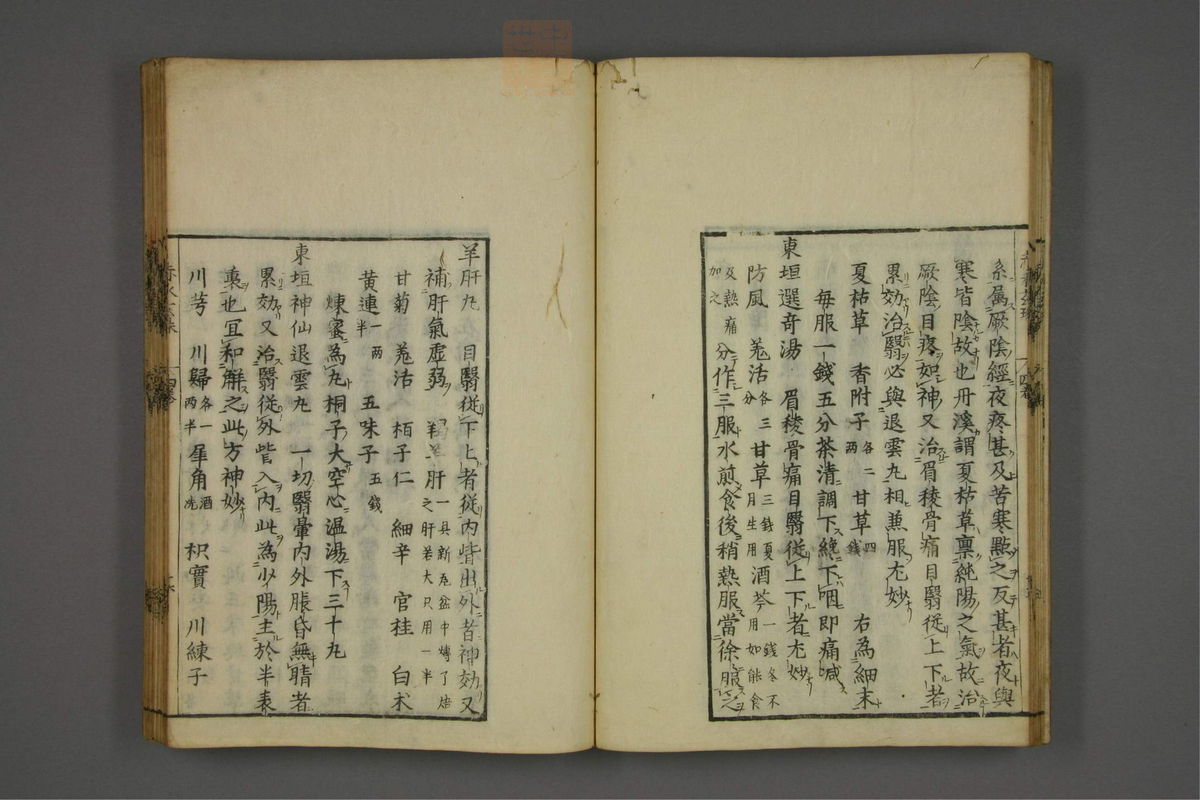 系属厥陰經夜疼甚及苦寒點之反甚者夜與
寒皆陰故也丹溪謂夏枯草稟純陽之氣故治
厥陰目疼如神又治眉稜骨痛目翳從上下者
累効治翳必與退雲丸相兼服尤妙
夏枯草 香附子各二兩 甘草四錢 右為細末
每服一錢五分茶清調下纔下咽即痛減
東垣選奇湯 眉稜骨痛目翳從上下者尤妙
防風 羗活各三分 甘草三錢夏月生用 酒芩一錢冬不用如能食
及熱痛加之 分作三服水煎食後稍熱服當徐服之
羊肝丸 目翳從下上者從内眥出外者神効又
補肝氣虚弱 羊肝一具新瓦盆中煿了焙之肝若大只用一半
甘菊 羗活 栢子仁 細辛 官桂 白朮
黄連一兩半 五味子五錢
煉蜜為丸桐子大空心温湯下三十丸
東垣神仙退雲丸 一切翳暈内外脹昏無睛者
累効又治翳從外眥入内此為少陽主於半表
裏也宜和解之此方神妙
川芎 川歸各一兩半 犀角酒洗 枳實 川練子